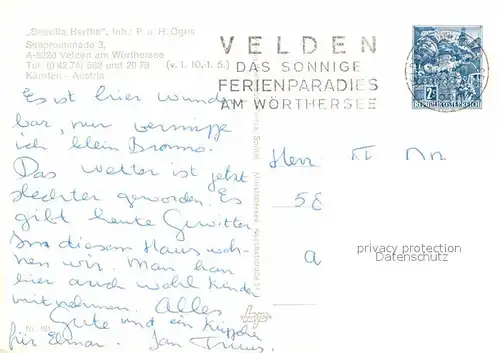 „Seevilla Hertha", Inh.: P. u. H. Ogris
Seepromenade 3,
A-9220 Velden am Wörthersee
Tel. (0 42 74) 582 und 20 79 (v. 1. 10.-1. 5.)
Kärnten - Austria
VELDEN
DAS SONNIGE
FERIENPARADIES
AM WÖRTHERSEE
REPUBLIK ÖSTERREICH
Es ist hier wunder
bar, nur vermisse
ich klein Brommo.
Das Wetter ist jetzt
slechter geworden. Es
gibt heute Gewitter.
In diesem Haus woh-
nen wir. Man kan
hier auch wohl Kinder
mitnehmen. Alles
Gute und ein Küsschen
für Elmar. Jan
Nr. 161
Herr
58
a
privacy protection
Datenschutz